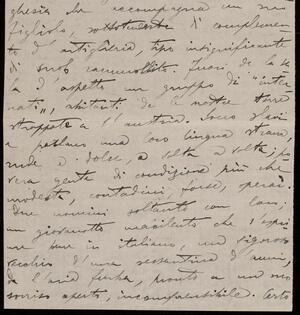 ghesia che accompagna un suo
figliolo, sottotenente di complemen-
to d'artiglieria, tipo insignificante
di snob rammollito. Fuori de la sa-
la d'aspetto un gruppo di "inter-
nati", abitanti de le nostre terre
strappate a l'Austria. Sono slavi
e parlano una loro lingua strana,
rude e dolce, a volta a volta; po-
vera gente di condizione più che
modesta, contadini, forse, operai.
due uomini soltanto con loro;
un giovanotto macilento che s'espri-
me pure in italiano, un vigoroso
vecchio d'una sessantina d'anni,
da l'aria furba, pronto a un suo
sorriso aperto, incomprensibile. Certo